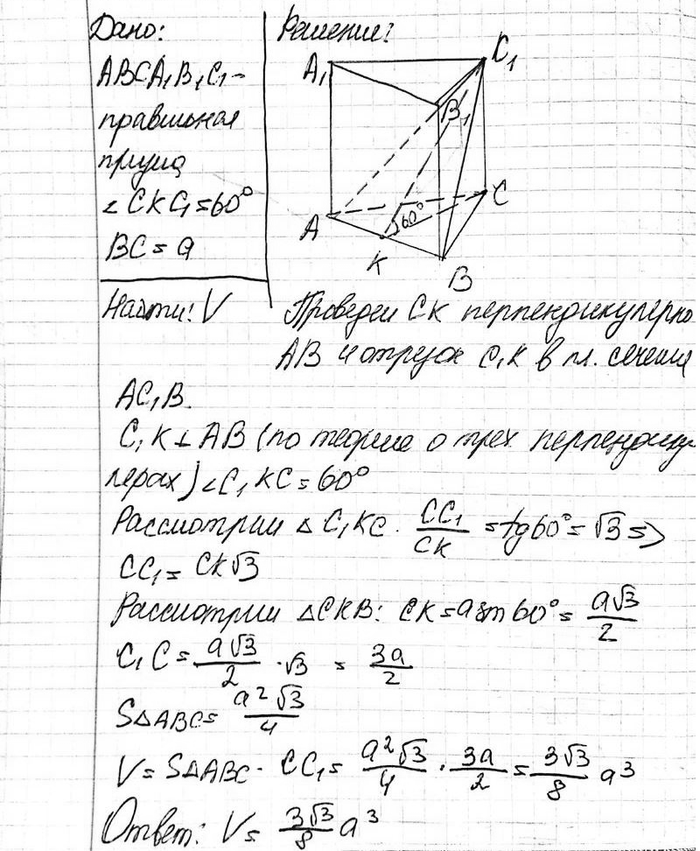 Дано:
ABCA₁B₁C₁ –
правильная
призма
∠CKC₁=60°
BC = a
Найти: V
Решение:
A₁
C₁
B₁
A
60°
C
K
B
Проведем CK перпендикулярно
AB и отрезок C₁K в пл. сечения
AC₁B.
C₁K⊥AB (по теореме о трех перпендику-
лярах) ∠C₁KC = 60°
Рассмотрим △C₁KC. CC₁/CK = tg60° = √3 =>
CC₁ = CK√3
Рассмотрим △CKB: CK = a sin 60° = a√3/2
C₁C = a√3/2 · √3 = 3a/2
S△ABC = a²√3/4
V = S△ABC · CC₁ = a²√3/4 · 3a/2 = 3√3/8 a³
Ответ: V = 3√3/8 a³